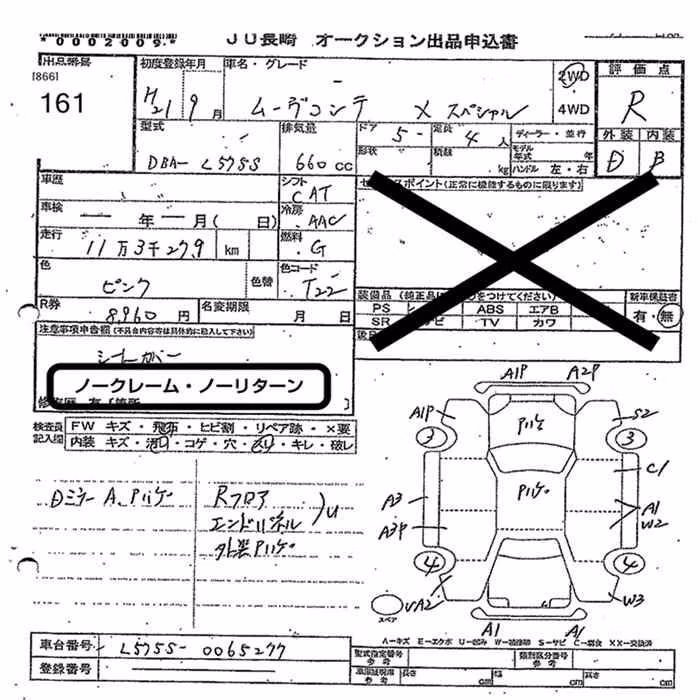 *0002009*
JU長崎 オークション出品申込書
出品番号
[866]
161
初度登録年月
H21 9月
車名・グレード
ムーヴコンテ X スペシャル
2WD
4WD
評価点
R
外装 内装
D B
型式
DBA- L575S
排気量
660 cc
ドア 5
定員 4人
形状
積載 kg
ディーラー・並行
モデル年式 年
ハンドル 左・右
車歴
シフト CAT
車検 年 月( 日)
冷房 AAC
走行 11万3千279 km
燃料 G
色 ピンク 色替
色コード T22
R券 8,960円
名変期限 月 日
セールスポイント(正常に機能するものに限ります)
装備品
PS ABS エアB
SR TV カワ
新車保証書
有・無
注意事項申告欄(不具合内容等は具体的に記入して下さい)
シートカバー
ノークレーム・ノーリターン
検査員記入欄
FW キズ・飛石・ヒビ割・リペア跡・×要
内装 キズ・汚レ・コゲ・穴・スレ・キレ・破レ
Dミラー A、Pハゲ
Rフロア
エンドパネル )U
外装Pハゲ
A1P A2P
A1P S2
Pハゲ
3 3
C1
Pハゲ
A3 A1
W2
A3P
4 4
UA2 W3
スペア
A1 A1
A－キズ E－エクボ U－凹み W－補修跡 S－サビ C－腐食 XX－交換済
車台番号 L575S- 0065277
登録番号
型式指定番号 参考
類別区分番号 参考
車庫証明用 参考 長さ cm 幅 cm 高さ cm